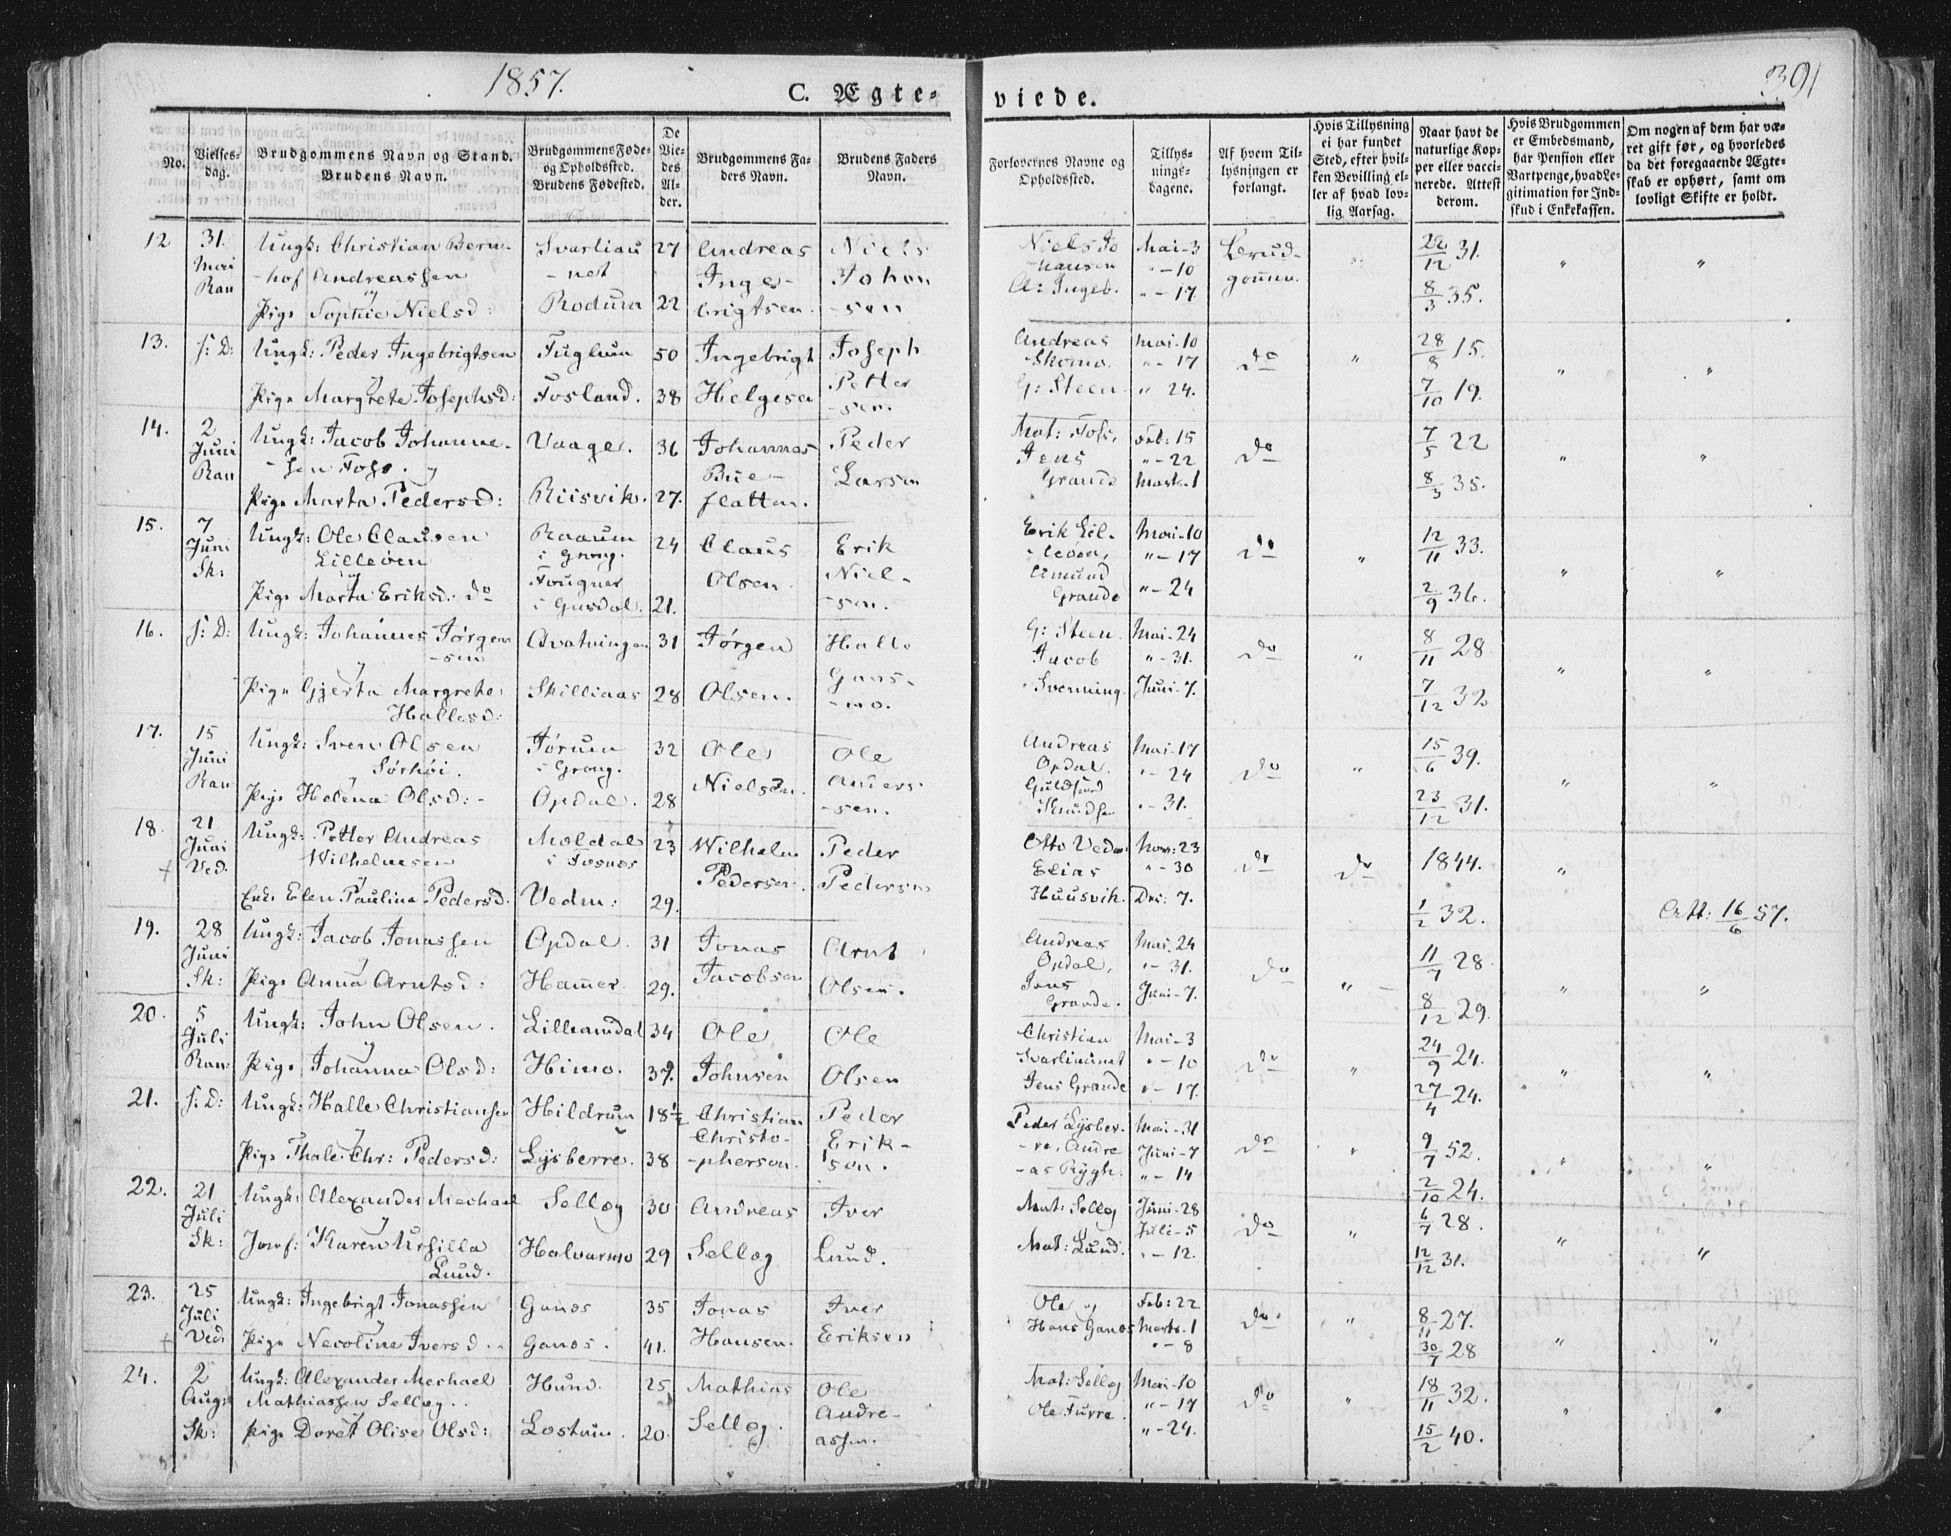 1857.
C. Ægte-
viede.
391
No.
Vielses-
dag.
Brudgommens Navn og Stand.
Brudens Navn.
Brudgommens Føde-
og Opholdssted.
Brudens Fødested.
De
Vie-
des
Al-
der.
Brudgommens Fa-
ders Navn.
Brudens Faders
Navn.
Forlovernes Navne og
Opholdssted.
Tillys-
nings-
dagene.
Af hvem Til-
lysningen er
forlangt.
Hvis Tillysning
ei har fundet
Sted, efter hvil-
ken Bevilling el-
ler af hvad lov-
lig Aarsag.
Naar havt de
naturlige Kop-
per eller vacci-
nerede. Attest
derom.
Hvis Brudgommen
er Embedsmand,
har Pension eller
Vartpenge, hvad Le-
gitimation for Ind-
skud i Enkekassen.
Om nogen af dem har væ-
ret gift før, og hvorledes
da det foregaaende Ægte-
skab er ophørt, samt om
lovligt Skifte er holdt.
12 31. Mai Ran
Ungk: Christian Bern-
-hof Andreassen
Pige Sophie Nielsd:
Svarliau
-net
Rodum
27
22
Andreas
Inge-
brigtsen.
Niels
Johan
-sen
Niels Jo
-hansen
A: Ingeb.
Mai-3
"-10
"-17
22/12 31.
8/3 35.
" "
13. s: D:
Ungk: Peder Ingebrigtsen
Pige Margrete Josephsd:
Fuglum
Fosland.
50
38
Ingebrigt
Helgesen
Joseph
Petter
-sen.
Andreas
Skomo.
G: Steen.
Mai-10
"-17
" 24.
do
"
28/8 15.
7/10 19.
" "
14. 2 Juni Ran
Ungk: Jacob Johanne-
-sen Foss.
Pige Marta Pedersd:
Vaage.
Riisvik.
36
27.
Johannes
Bue-
flatten.
Peder
Larsen
Mat: Foss,
Jens
Grande
Feb: 15
"-22
Marts. 1
do
7/5 22
8/3 35.
" "
15. 7 Juni Sk:
Ungk: Ole Clausen
Lilleøen
Pige Marta Eriksd: do
Raaum
i Grong.
Fougner
i Gusdal.
24
21.
Claus
Olsen
Erik
Niel-
-sen.
Erik Lil-
-leøen,
Amund
Grande
Mai-10
"-17
"-24
do
"
12/11 33.
2/9 36.
" "
16. s: D:
Ungk: Johannes Jørgen
-sen
Pige Gjerta Margrete
Hallesd:
Avatningen
Skilliaas
31
28
Jørgen
Olsen.
Halle
Gans-
-mo.
G: Steen.
Jacob
Svenning.
Mai-24
"-31.
Juni-7.
do
"
8/11 28
7/12 32
" "
17. 15 Juni Ran
Ungk: Sven Olsen
Sørhøi.
Pige Helena Olsd:-
Jørum
i Grong.
Opdal.
32
28
Ole
Nielsen.
Ole
Anders
-sen.
Andreas
Opdal.
Mai-17
"-24
"-31.
do
"
15/6 39.
23/12 31.
" "
18. 21 Juni Ved.
Ungk: Petter Andreas
Wilhelmsen
Enke Elen Paulina Pedersd.
Moldal
i Fosnæs
Vedm:
23
29.
Wilhelm
Pedersen.
Peder
Pedersen
Otto Vedm.
Elias
Huusvik.
Nov: 23
"-30
Dec: 7.
do
do
1844.
1/2 32.
"
Att: 16/6 57.
19. 28 Juni Sk:
Ungk: Jacob Jonassen
Pige Anna Arntsd:
Opdal.
Hamer.
31
29.
Jonas
Jacobsen
Arnt
Olsen.
Andreas
Opdal,
Jens
Grande.
Mai-24
"-31.
Juni-7.
do
"
11/7 28
8/12 29.
" "
20. 5 Juli Ran:
Ungk: John Olsen.
Pige Johanna Olsd:
Lilleamdal
Himo.
34
37.
Ole
Johnsen
Ole
Olsen
Christian
Svarliaunet
Jens Grande
Mai-3
"-10
"-17.
do
"
24/9 24.
27/4 24.
" "
21. s: D:
Ungk: Halle Christiansen
Pige Thale Chr: Pedersd:
Hildrum
Lysberre.
18 1/2
38
Christian
Christo-
-pherson.
Peder
Erik-
son.
Peder Lysber-
-re, Andre
-as Rygh.
Mai-31
Juni-7
"-14
do
"
9/7 52.
2/10 24.
" "
22. 21 Juli Sk:
Ungk: Alexander Mechael
Jomf: Karen Ursilla
Lund.
Selleg
Halvarmo
30
29
Andreas
Selleg
Iver
Lund.
Mat: Selleg
Mat: Lund.
Juni-28
Juli-5
"-12.
do
"
6/7 28.
12/12 31.
" "
23. 25 Juli Ved.
Ungk: Ingebrigt Jonassen
Pige Necoline Iversd.
Ganæs
Ganæs.
35
41.
Jonas
Hansen.
Iver
Eriksen
Ole og
Hans Ganæs
Feb: 22
Marts-1
"-8
do
"
8/11 27.
30/7 28
" "
24. 2 Aug: Sk:
Ungk: Alexander Mechael
Mathiassen Selleg..
Pige Doret Olise Olsd:
Hund.
Lostum.
25
20.
Mathias
Selleg.
Ole
Andre-
assen.
Mat: Selleg
Ole Furre.
Mai-10
"-17
"-24.
do
"
18/11 32.
15/2 40.
" "